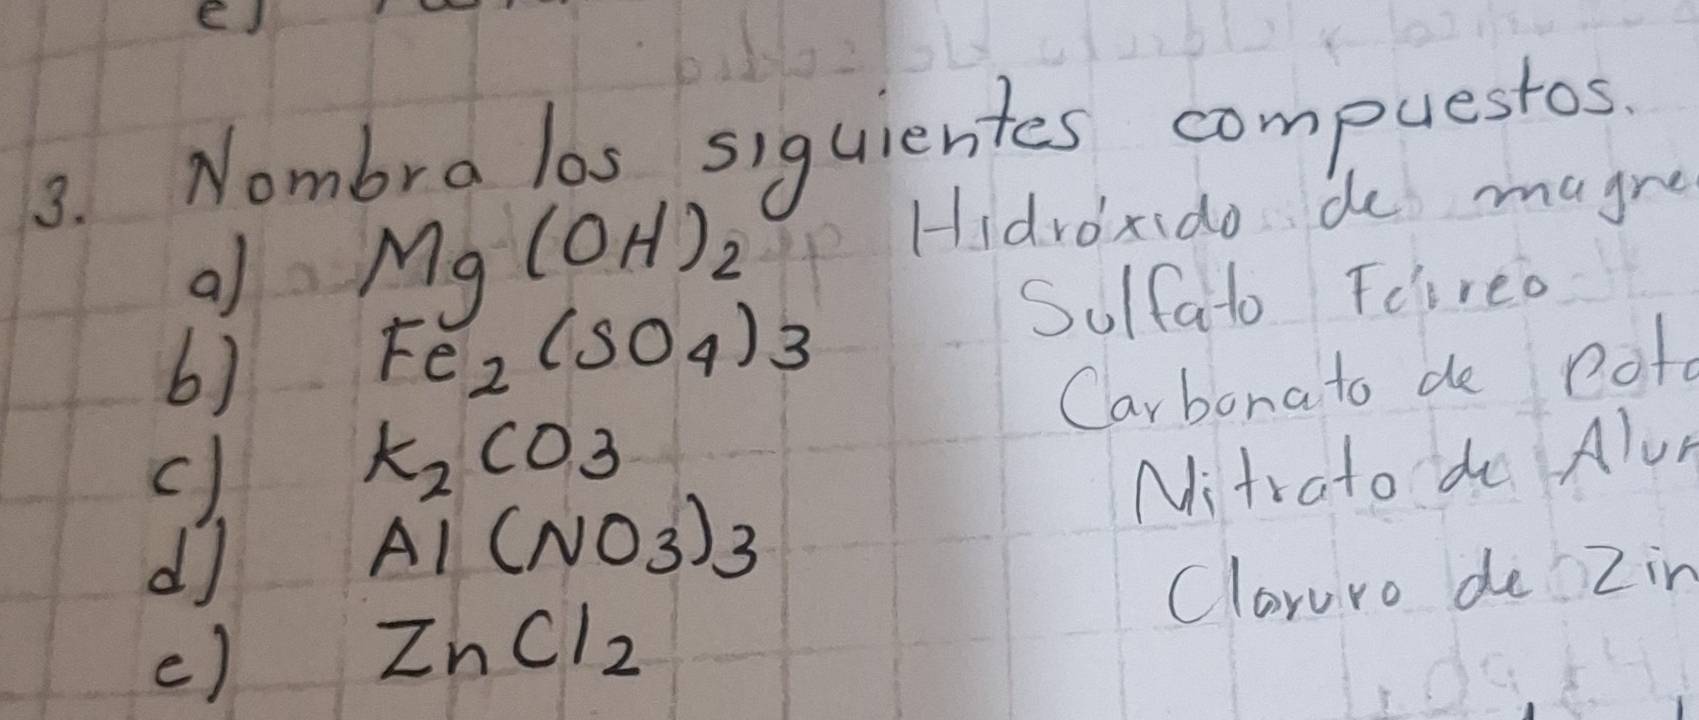 e)
3. Nombra los siguientes compuestos.
a) Mg(OH)2 Hidróxido de magne
b) Fe2(SO4)3 Sulfato Férreo
c) K2CO3 Carbonato de pota
d) Al(NO3)3 Nitrato de Alum
e) ZnCl2 Cloruro de Zin